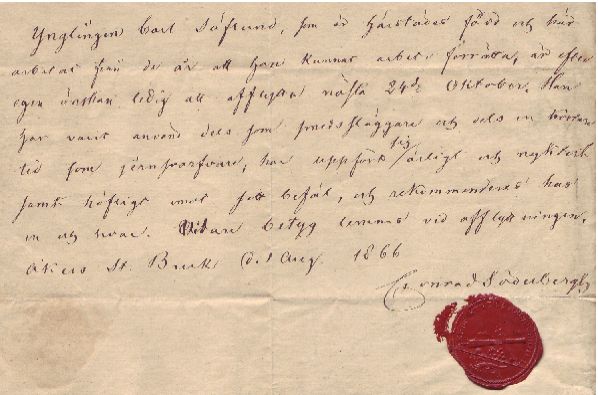 Ynglingen Carl Söflund, som är härstädes född och här
arbetat från de år att han kunnat arbete förrätta, är efter
egen önskan ledig att afflytta nästa 24de Oktober. Han
har varit använd dels som smedssläggare och dels en
tid som jernsvarfvare, har uppfört sig ärligt och nyktert
samt höfligt mot sett befäl, och rekommenderas hos
en och hvar. Vidare betyg lemnas vid afflyttningen.
Åkers St. Bruk d. 1 Aug 1866
Conrad Söderbergh